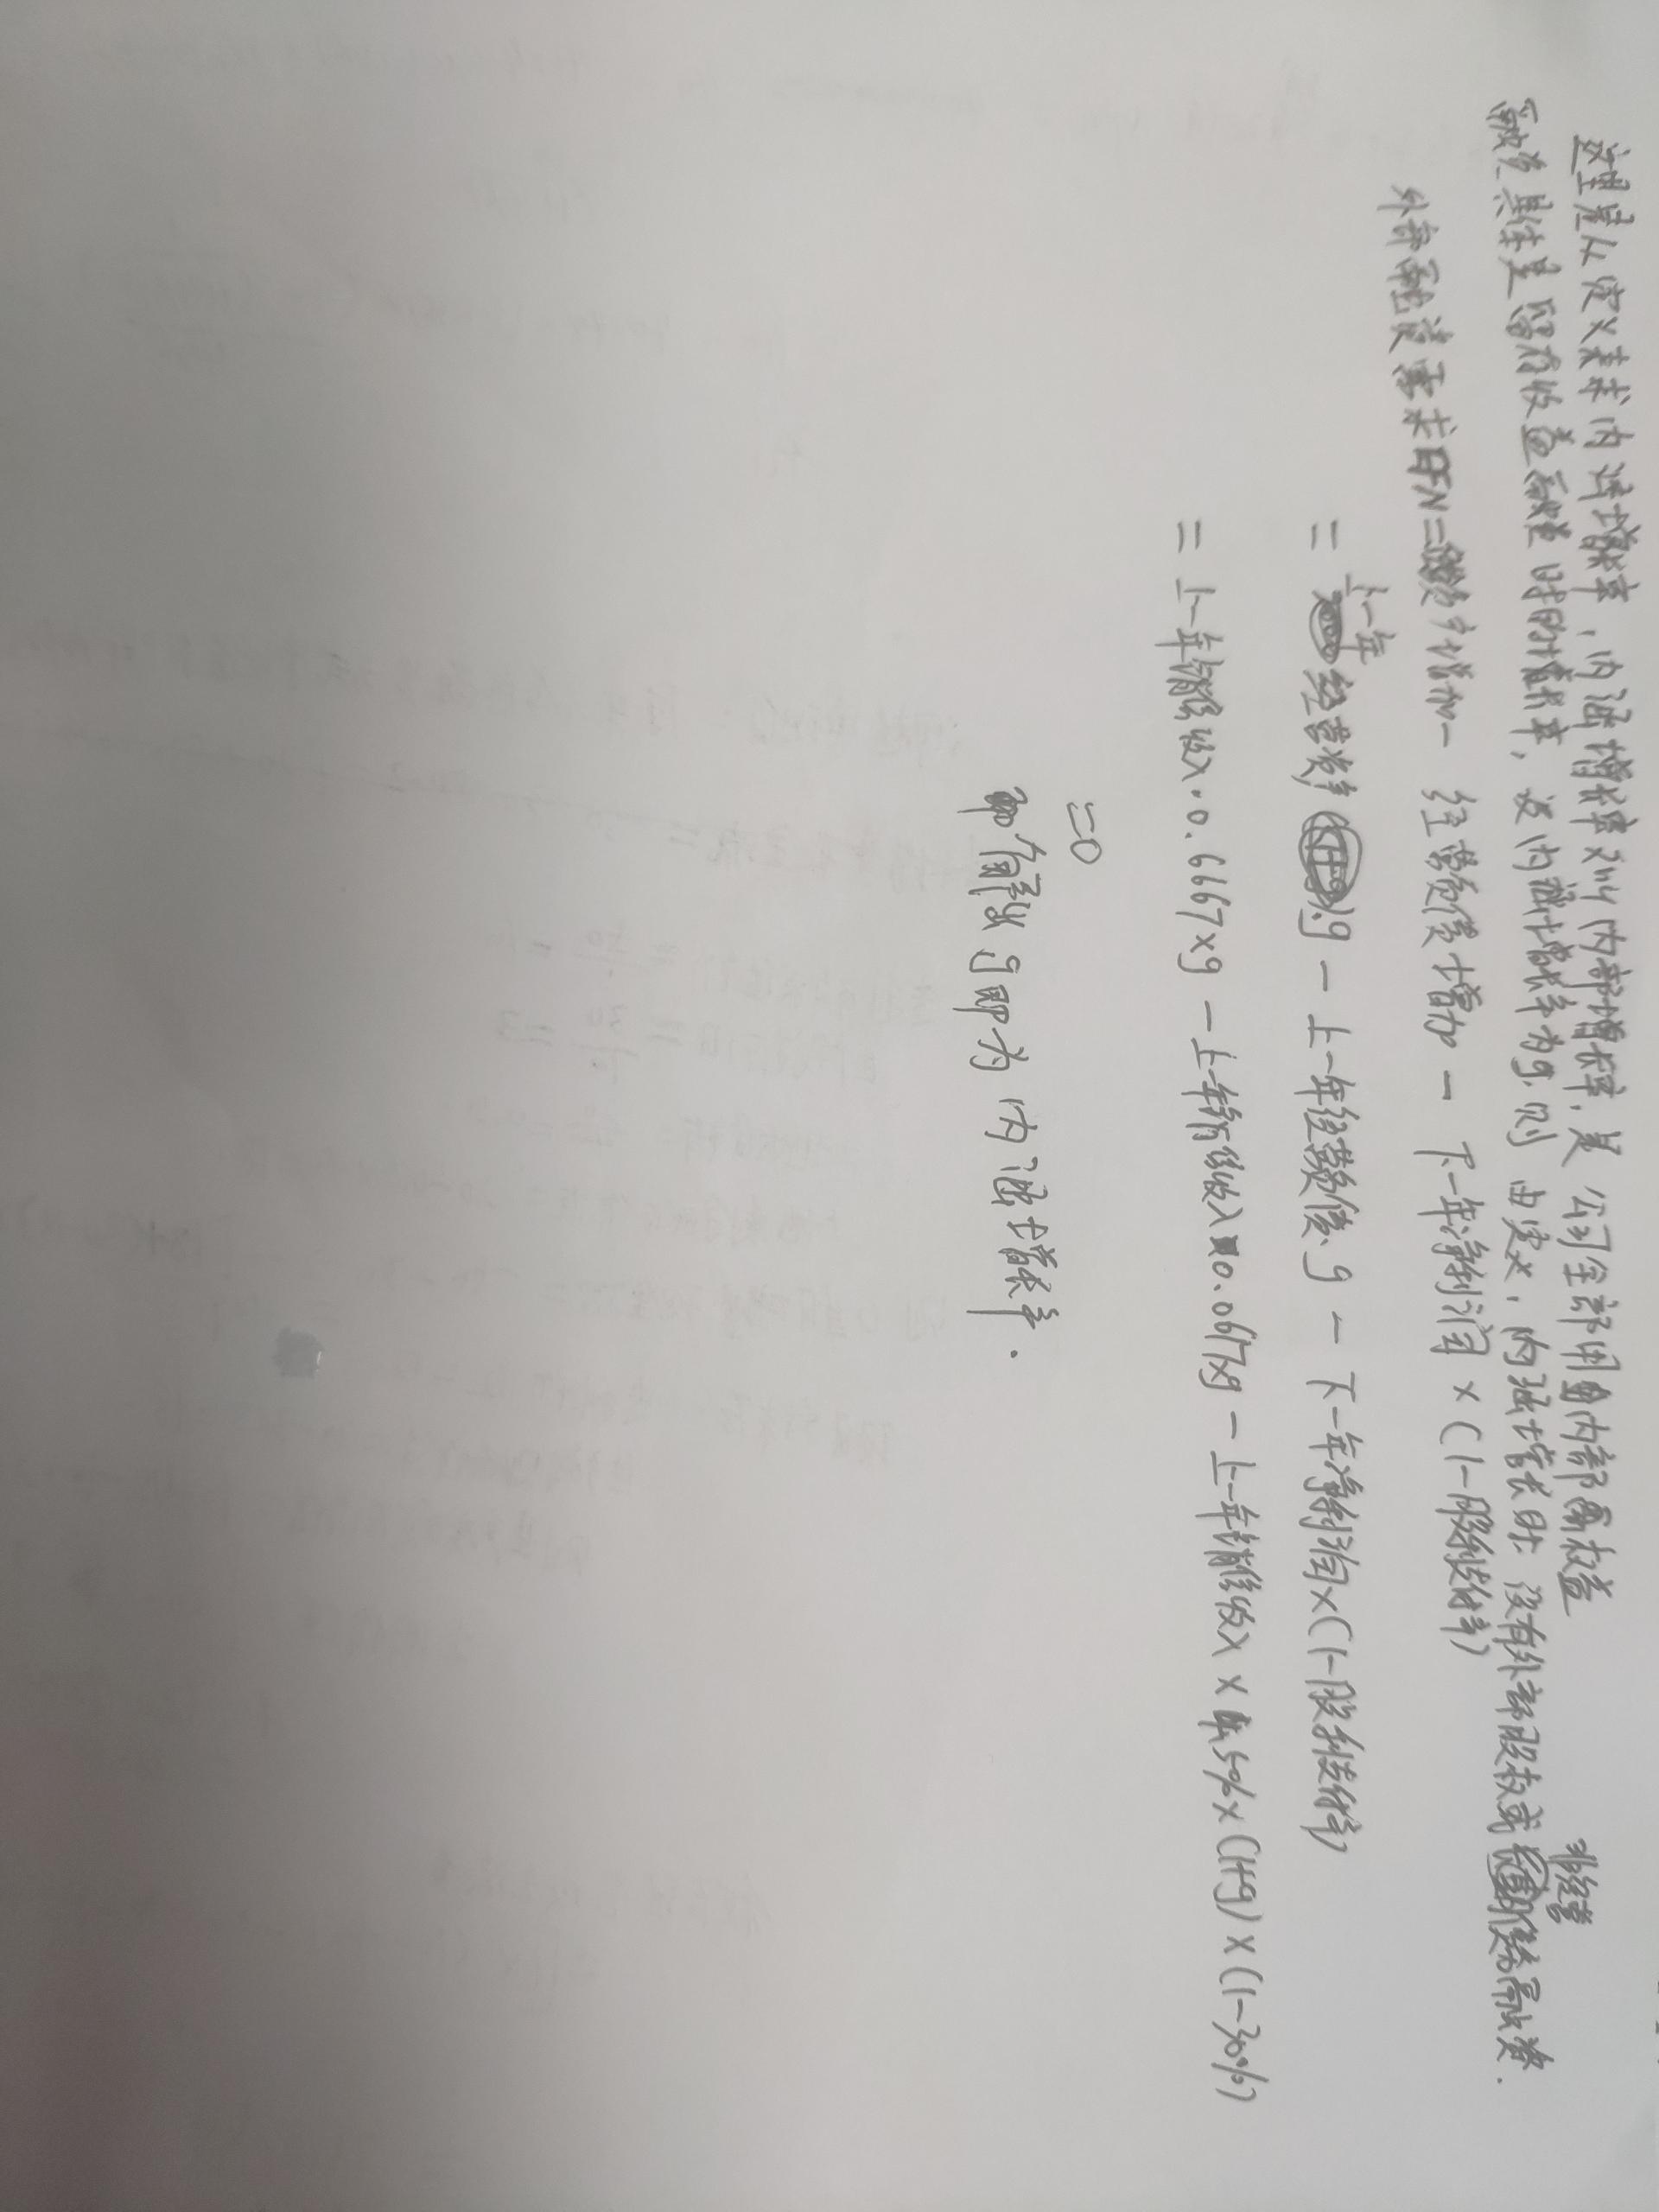 这里是从定义来求内涵增长率,内涵增长率又叫内部增长率,是公司全部用内部权益
融资具体是留存收益融资时的增长率,设内涵增长率为g.则由定义,内涵增长时没有外部股权或非经营债务融资.
外部融资需求EFN=经营资产增加-经营负债增加-下一年净利润×(1-股利支付率)
=上一年经营资产·g-上一年经营负债·g-下一年净利润×(1-股利支付率)
=上一年销售收入·0.6667×g-上一年销售收入×0.0617×g-上一年销售收入×4.5%×(1+g)×(1-30%)
=0
即解出g即为内涵增长率.